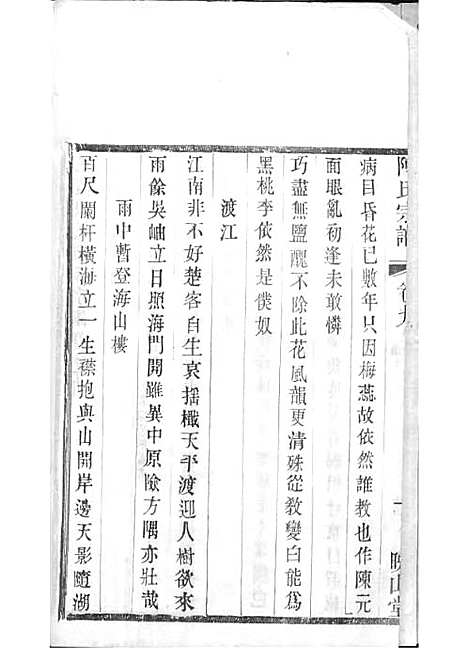 陳氏宗譜 卷九 一 映山堂
病目昏花已數年只因梅蕊故依然誰教也作陳元
面眼亂初逢未敢憐
巧盡無鹽醜不除此花風韻更清姝從敎變白能爲
黑桃李依然是僕奴
渡江
江南非不好楚客自生哀搖檝天平渡迎人樹欲來
雨餘吳岫立日照海門開雖異中原險方隅亦壯哉
雨中暫登海山樓
百尺闌杆橫海立一生襟抱與山開岸邊天影隨湖